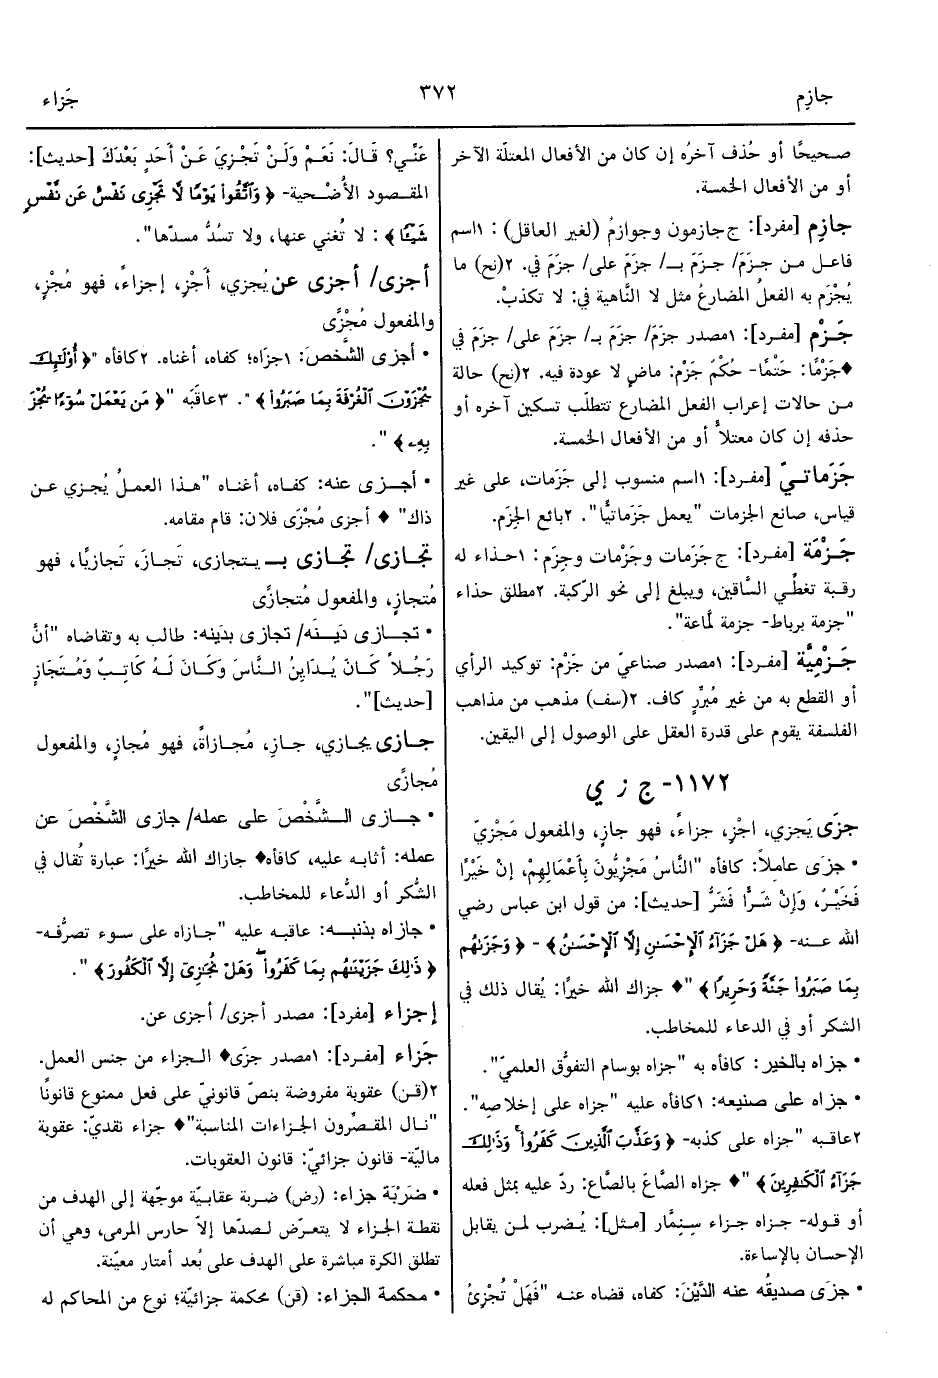 جازِم
٣٧٢
جَزاء
صحيحًا أو حُذف آخرُه إن كان من الأفعال المعتلّة الآخر
أو من الأفعال الخمسة.
جازِم [مفرد]: ج جازمون وجوازمُ (لغير العاقل): ١اسم
فاعل من جزَمَ/ جزَمَ بـ/ جزَمَ على/ جزَمَ في. ٢(نح) ما
يُجْزَم به الفعلُ المضارعُ مثل لا النَّاهية في: لا تكذبْ.
جَزْم [مفرد]: ١مصدر جزَمَ/ جزَمَ بـ/ جزَمَ على/ جزَمَ في
♦جَزْمًا: حَتْمًا- حُكْم جَزْم: ماضٍ لا عودة فيه. ٢(نح) حالة
من حالات إعراب الفعل المضارع تتطلّب تسكين آخره أو
حذفه إن كان معتلاًّ أو من الأفعال الخمسة.
جَزَماتيّ [مفرد]: ١اسم منسوب إلى جَزَمات، على غير
قياس، صانع الجزمات "يعمل جَزَماتيًّا". ٢بائع الجِزَم.
جَزْمَة [مفرد]: ج جَزَمات وجَزْمات وجِزَم: ١حذاء له
رقبة تغطِّي السَّاقين، ويبلغ إلى نحو الرّكبة. ٢مطلق حذاء
"جزمة برباط- جزمة لمَّاعة".
جَزْمِيَّة [مفرد]: ١مصدر صناعيّ من جَزْم: توكيد الرأي
أو القطع به من غير مُبرِّر كاف. ٢(سف) مذهب من مذاهب
الفلسفة يقوم على قدرة العقل على الوصول إلى اليقين.
١١٧٢- ج ز ي
جزَى يَجزي، اجْزِ، جزاءً، فهو جازٍ، والمفعول مَجْزيّ
• جزَى عاملاً: كافأه "النَّاسُ مَجْزِيُّونَ بِأَعْمَالِهِمْ، إِنْ خَيْرًا
فَخَيْرٌ، وَإِنْ شَرًّا فَشَرٌّ [حديث]: من قول ابن عباس رضي
الله عنه- ﴿هَلْ جَزَآءُ ٱلْإِحْسَٰنِ إِلَّا ٱلْإِحْسَٰنُ﴾ - ﴿وَجَزَىٰهُم
بِمَا صَبَرُوا۟ جَنَّةً وَحَرِيرًا﴾ "♦ جزاك الله خيرًا: يُقال ذلك في
الشكر أو في الدعاء للمخاطب.
• جزاه بالخير: كافأه به "جزاه بوسام التفوُّق العلميّ".
• جزاه على صنيعه: ١كافأه عليه "جزاه على إخلاصِه".
٢عاقبه "جزاه على كذبه- ﴿وَعَذَّبَ ٱلَّذِينَ كَفَرُوا۟ وَذَٰلِكَ
جَزَآءُ ٱلْكَٰفِرِينَ﴾ "♦ جزاه الصَّاعَ بالصَّاع: ردّ عليه بمثل فعله
أو قوله- جزاه جزاء سِنِمَّار [مثل]: يُضرب لمن يقابل
الإحسان بالإساءة.
• جزَى صديقُه عنه الدَّيْنَ: كفاه، قضاه عنه "فَهَلْ تُجْزِئُ
عَنِّي؟ قَالَ: نَعَمْ وَلَنْ تَجْزِيَ عَنْ أَحَدٍ بَعْدَكَ [حديث]:
المقصود الأُضْحية- ﴿وَٱتَّقُوا۟ يَوْمًا لَّا تَجْزِى نَفْسٌ عَن نَّفْسٍ
شَيْـًٔا﴾: لا تُغني عنها، ولا تسُدُّ مسدّها".
أجزى/ أجزى عن يُجزي، أَجْزِ، إجزاءً، فهو مُجْزٍ،
والمفعول مُجْزًى
• أجزى الشَّخصَ: ١جزَاه؛ كفاه، أغناه. ٢كافأه "﴿أُو۟لَٰٓئِكَ
يُجْزَوْنَ ٱلْغُرْفَةَ بِمَا صَبَرُوا۟﴾". ٣عاقَبَه "﴿مَن يَعْمَلْ سُوٓءًا يُجْزَ
بِهِۦ﴾".
• أجزى عنه: كفاه، أغناه "هذا العملُ يُجزي عن
ذاك" ♦ أجزى مُجْزَى فلان: قام مقامه.
تجازى/ تجازى بـ يتجازى، تَجازَ، تَجازيًا، فهو
مُتجازٍ، والمفعول مُتجازًى
• تجازى دَيْنَه/ تجازى بدَينه: طالب به وتقاضاه "أنَّ
رَجُلاً كَانَ يُدَايِنُ النَّاسَ وَكَانَ لَهُ كَاتِبٌ وَمُتَجَازٍ
[حديث]".
جازى يجازي، جازِ، مُجازاةً، فهو مُجازٍ، والمفعول
مُجازًى
• جازى الشَّخْصَ على عمله/ جازى الشَّخْصَ عن
عمله: أثابه عليه، كافأه♦ جازاك الله خيرًا: عبارة تُقال في
الشُّكر أو الدُّعاء للمخاطب.
• جازاه بذنبه: عاقبه عليه "جازاه على سوء تصرُّفه-
﴿ذَٰلِكَ جَزَيْنَٰهُم بِمَا كَفَرُوا۟ ۖ وَهَلْ نُجَٰزِىٓ إِلَّا ٱلْكَفُورَ﴾".
إجزاء [مفرد]: مصدر أجزى/ أجزى عن.
جَزاء [مفرد]: ١مصدر جزَى♦ الجزاء من جنس العمل.
٢(قن) عقوبة مفروضة بنصّ قانونيّ على فعل ممنوع قانونًا
"نال المقصِّرون الجزاءات المناسبة"♦ جزاء نقديّ: عقوبة
ماليّة- قانون جزائيّ: قانون العقوبات.
• ضَرْبَة جزاء: (رض) ضربة عقابيّة موجّهة إلى الهدف من
نقطة الجزاء لا يتعرّض لصدّها إلاّ حارس المرمى، وهي أن
تطلق الكرة مباشرة على الهدف على بُعد أمتار معيّنة.
• محكمة الجزاء: (قن) محكمة جزائيّة؛ نوع من المحاكم له